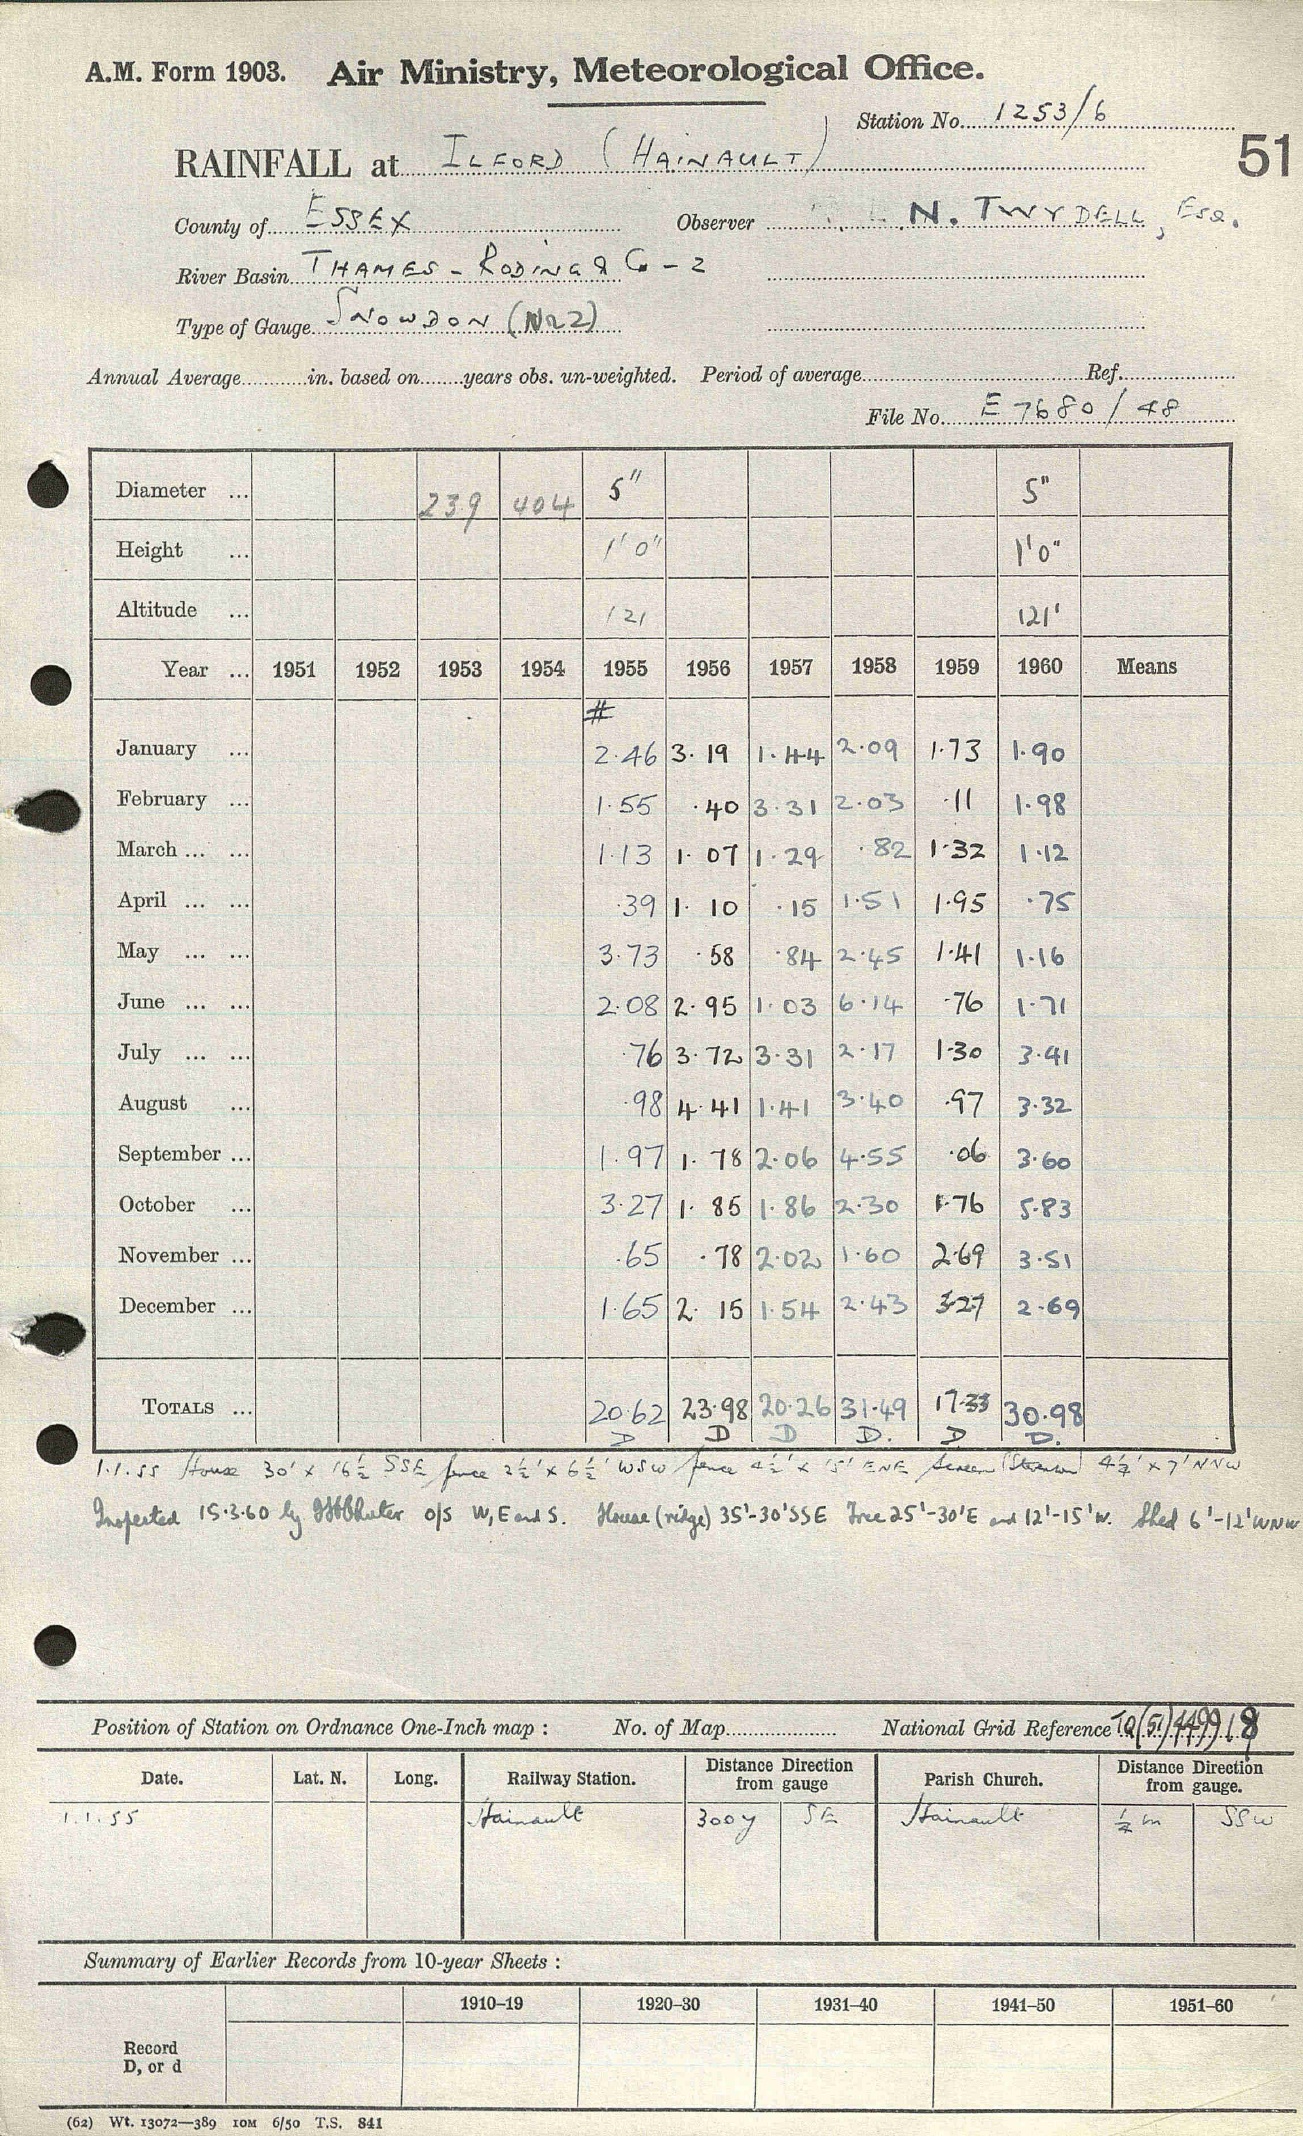 A.M. Form 1903. Air Ministry, Meteorological Office.
Station No. 1253/6
51
RAINFALL at ILFORD (HAINAULT)
County of ESSEX Observer N. TWYDELL, Esq.
River Basin THAMES - RODING & C - 2
Type of Gauge SNOWDON (N22)
Annual Average in. based on years obs. un-weighted. Period of average Ref.
File No. E 7680/48
Diameter ... 239 404 5" 5"
Height ... 1'0" 1'0"
Altitude ... 121 121'
Year ... 1951 1952 1953 1954 1955 1956 1957 1958 1959 1960 Means
#
January ... 2.46 3.19 1.44 2.09 1.73 1.90
February ... 1.55 .40 3.31 2.03 .11 1.98
March ... ... 1.13 1.07 1.29 .82 1.32 1.12
April ... ... .39 1.10 .15 1.51 1.95 .75
May ... ... 3.73 .58 .84 2.45 1.41 1.16
June ... ... 2.08 2.95 1.03 6.14 .76 1.71
July ... ... .76 3.72 3.31 2.17 1.30 3.41
August ... .98 4.41 1.41 3.40 .97 3.32
September ... 1.97 1.78 2.06 4.55 .06 3.60
October ... 3.27 1.85 1.86 2.30 1.76 5.83
November ... .65 .78 2.02 1.60 2.69 3.51
December ... 1.65 2.15 1.54 2.43 3.27 2.69
TOTALS ... 20.62 23.98 20.26 31.49 17.33 30.98
D D D D. D D.
1.1.55 House 30' x 16½ SSE fence 2½' x 6½' WSW fence 4½' x 15' ENE Screen (Stevenson) 4½' x 7' NNW
Inspected 15.3.60 by o/s W, E and S. House (ridge) 35'-30'SSE Tree 25'-30'E and 12'-15'W. Shed 6'-12'WNW
Position of Station on Ordnance One-Inch map : No. of Map National Grid Reference TQ (51)
Date. Lat. N. Long. Railway Station. Distance Direction from gauge Parish Church. Distance Direction from gauge.
1.1.55 Hainault 300y SE Hainault ½ m SSW
Summary of Earlier Records from 10-year Sheets :
1910–19 1920–30 1931–40 1941–50 1951–60
Record
D, or d
(62) Wt. 13072—389 10M 6/50 T.S. 841